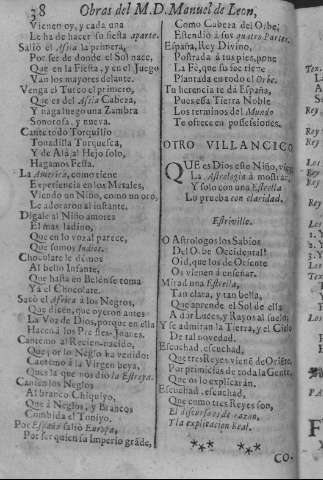 38 Obras del M.D. Manuel de Leon,
Vienen oy, y cada una
Le ha de hacer su fiesta aparte.
Salió el Assia la primera,
Por ser de donde el Sol nace,
Que en la Fiesta, y en el Juego
Van los mayores delante.
Venga el Turco el primero,
Que es del Assia Cabeza,
Y haga luego una Zambra
Sonorosa, y nueva.
Cante todo Torquillo
Tonadilla Turquesca,
Y de Alá al Hejo solo,
Hagamos Festa.
La America, como tiene
Experiencia en los Metales,
Viendo un Niño, como un oro,
Le adoraron al instante.
Digale al Niño amores
El mas ladino,
Que en lo voz al parece,
Que somos Indios.
Chocolate le démos
Al bello Infante,
Que hasta en Belén se toma
Yá el Chocolate.
Sacó el Africa á los Negros,
Que dicen, que oyeron antes
La Voz de Dios, porque en ella
Hacen á los Prestes Juanes.
Cantemo al Recien-nacido,
Que por la Neglo ha venido:
Cantemo á la Virgen beya,
Que la que nos dió la Estreya.
Canten los Neglos
Al branco Chiquiyo,
Que á Neglos, y Brancos
Combida el Toniyo.
Por España salió Europa,
Por ser quien su Imperio gráde,
Como Cabeza del Orbe,
Estendió á sus quatro Partes.
España, Rey Divino,
Postrada á tus pies, pone
La Fé, que su sér tiene
Plantada en todo el Orbe.
Tu herencia te dá España,
Pues essa Tierra Noble
Los terminos del Mundo
Te ofrece en possessiones.
OTRO VILLANCICO
QUE es Dios este Niño,
La Astrologia á mostrar,
Y solo con una Estrella
Lo prueba con claridad.
Estrivillo.
O Astrologos los Sabios
Del Orbe Occidental!
Oid, que los de Oriente
Os vienen á enseñar.
Mirad una Estrella,
Tan clara, y tan bella,
Que aprende el Sol de ella
A dár Luces, y Rayos al suelo;
Y se admiran la Tierra, y el Cielo
De tal novedad.
Escuchad, escuchad,
Que tres Reyes viené de Oriéte,
Por primicias de toda la Gente,
Que os lo explicarán.
Escuchad, escuchad,
Que como tres Reyes son,
El discurso es de razon,
Y la explicacion Real.
CO-